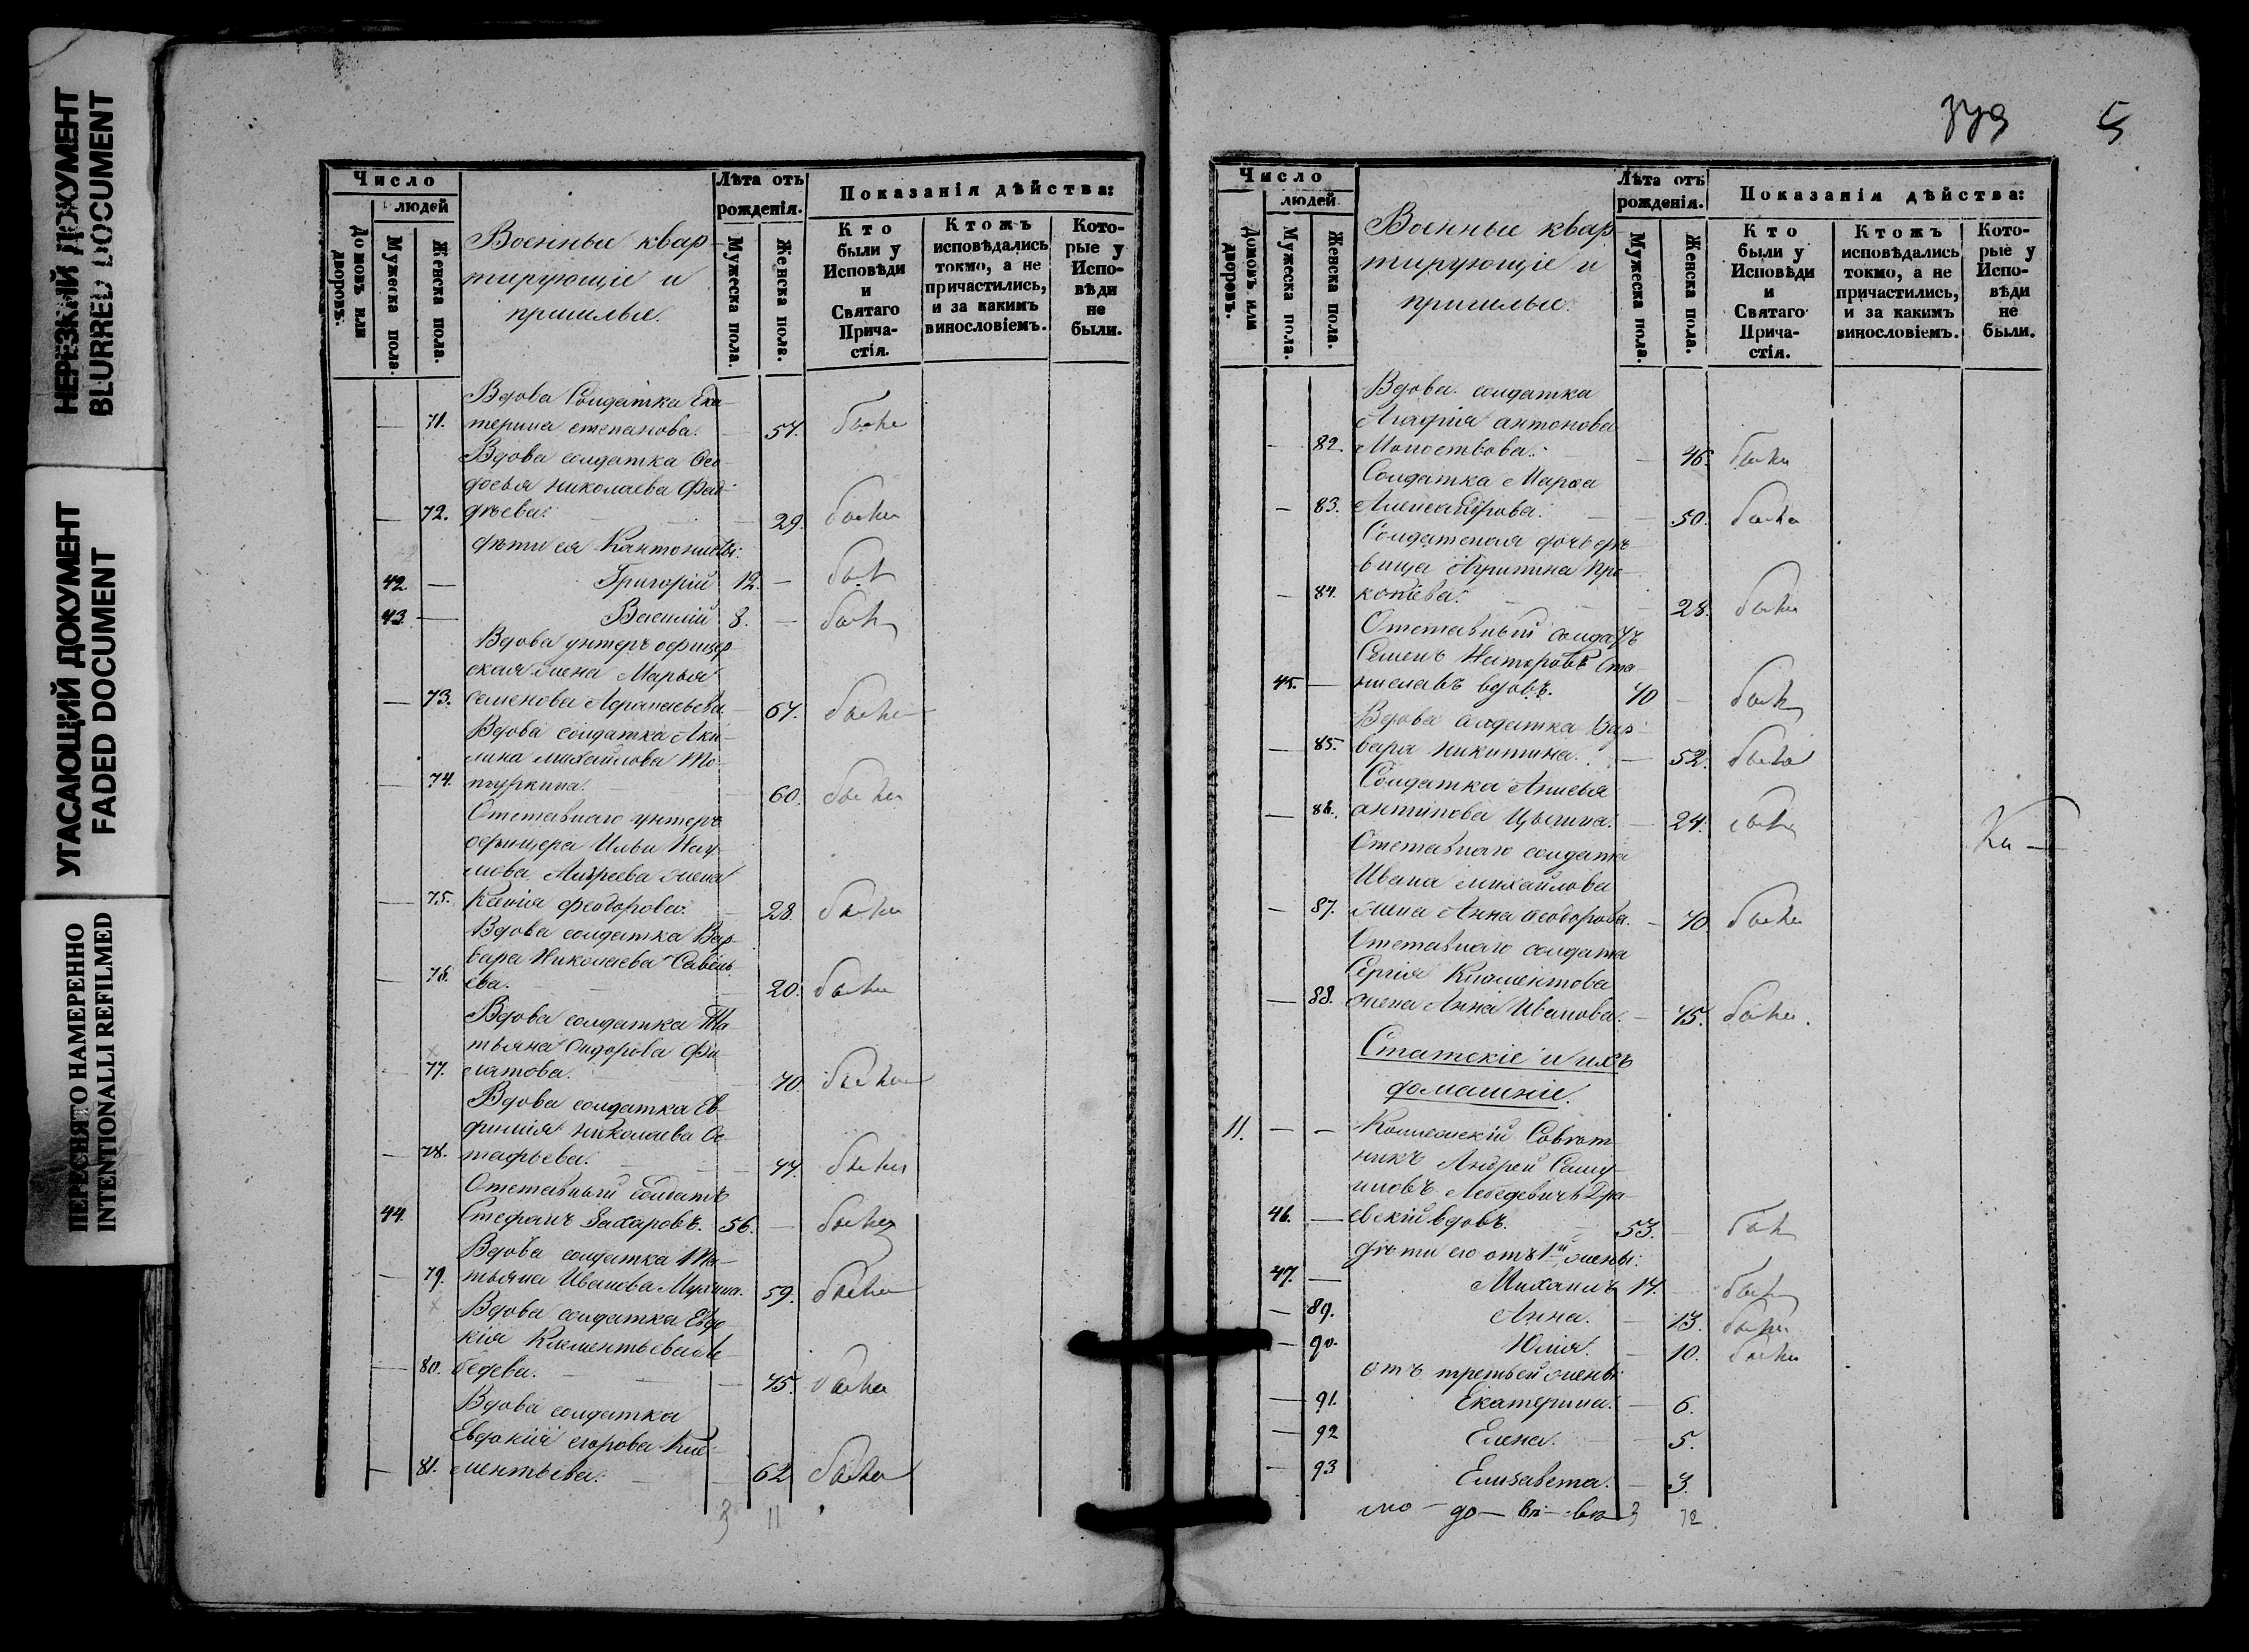 НЕРЕЗКИЙ ДОКУМЕНТ
BLURRED DOCUMENT
УГАСАЮЩИЙ ДОКУМЕНТ
FADED DOCUMENT
ПЕРЕСНЯТО НАМЕРЕННО
INTENTIONALLI REFILMED
Число
людей
Домовъ или дворовъ.
Мужеска пола.
Женска пола.
Военные квар-
тирующіе и
пришлые.
Лѣта отъ рожденія.
Мужеска пола.
Женска пола.
Показанія дѣйства:
Кто были у Исповѣди и Святаго Прича-стія.
Ктожъ исповѣдались токмо, а не причастились, и за какимъ винословіемъ.
Кото-рые у Испо-вѣди не были.
Вдова Солдатка Ека-
— 71. терина степанова. — 57.
Вдова солдатка Ѳео-
досья николаева Фад-
— 72. дѣева. — 29.
дѣти ея Кантонисты:
42. — Григорій 12. —
43. — Василій 8. —
Вдова унтеръ офицер-
ская жена Марья
— 73. семенова Афанасьева — 67.
Вдова солдатка Аки-
лина михайлова
— 74. — 60.
Отставнаго унтеръ
офицера Ильи Нау-
мова Андреева жена
— 75. Ксенія феодорова. — 28.
Вдова солдатка Вар-
вара Николаева Савель-
— 76. ева. — 20.
Вдова солдатка Та-
тьяна Сидорова Фи-
— 77. латова. — 70.
Вдова солдатка Ев-
фимія николаева Ос-
— 78. тафьева. — 44.
Отставный солдатъ
44. Стефанъ Захаровъ. 56. —
Вдова солдатка Та-
— 79. тьяна Иванова Мухина. 59.
Вдова солдатка Евдо-
кія Клементьева Ле-
— 80. бедева. — 45.
Вдова солдатка
Евдокія егорова Кле-
— 81. ментьева. — 62
3 11
5
Число
людей
Домовъ или дворовъ.
Мужеска пола.
Женска пола.
Военные квар-
тирующіе и
пришлые.
Лѣта отъ рожденія.
Мужеска пола.
Женска пола.
Показанія дѣйства:
Кто были у Исповѣди и Святаго Прича-стія.
Ктожъ исповѣдались токмо, а не причастились, и за какимъ винословіемъ.
Кото-рые у Испо-вѣди не были.
Вдова солдатка
Агафія антонова
— 82. — 46.
Солдатка Марѳа
— 83. Александрова. — 50.
Солдатская дочь дѣ-
вица Агрипина Про-
— 84. копіева. — 28.
Отставный солдатъ
Семенъ Нестеровъ Ста-
45. — ниславъ вдовъ. 40 —
Вдова солдатка Вар-
— 85. вара никитина. — 52.
Солдатка Анисья
— 86. антипова — 24.
Отставнаго солдата
Ивана михайлова
— 87. жена Анна Ѳеодорова. — 40
Отставнаго солдата
Сергія Климентова
— 88. жена Анна Иванова. — 45.
Статскіе и ихъ
домашніе.
11. — — Коллежскій Совѣт-
никъ Андрей Саму-
иловъ Лебедевичъ Дра-
46. — евскій вдовъ. 53. —
дѣти его отъ 1й жены:
47. — Михаилъ 14. —
— 89. Анна. — 13.
— 90. Юлія. — 10.
отъ третьей жены:
— 91. Екатерина. — 6.
— 92 Елена. — 5.
— 93 Елисавета. — 3.
3 12